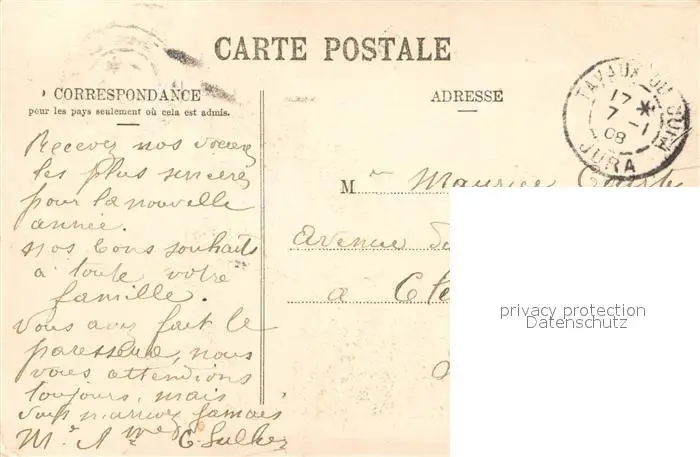 CARTE POSTALE
CORRESPONDANCE
pour les pays seulement où cela est admis.
ADRESSE
TAVAUX JURA
17 *
7 -1
08
Recevez nos voeux
les plus sincères
pour la nouvelle
année.
nos bons souhaits
à toute votre
famille.
Vous avez fait le
paresseux, nous
vous attendions
toujours, mais
vous n'arrivez jamais
Mr Maurice
avenue
à
privacy protection
Datenschutz